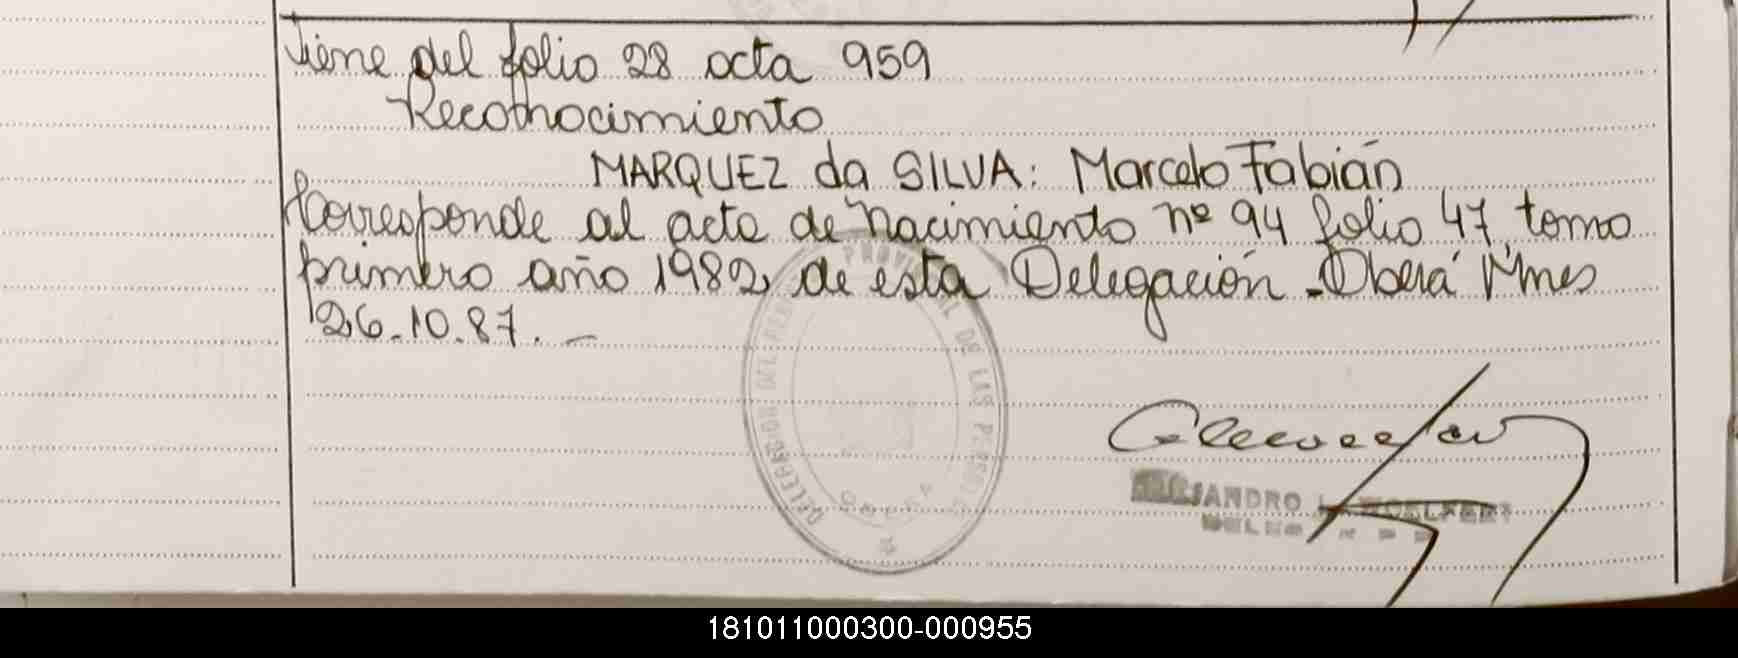 Viene del folio 28 acta 959
Reconocimiento
MARQUEZ da SILVA: Marcelo Fabián
Corresponde al acta de nacimiento nº 94 folio 47, tomo
primero año 1982, de esta Delegación - Oberá Mnes
26.10.87. -
DELEGACION DEL PROVINCIAL DE LAS PERSO
OBERA
ALEJANDRO WOELFERT
181011000300-000955